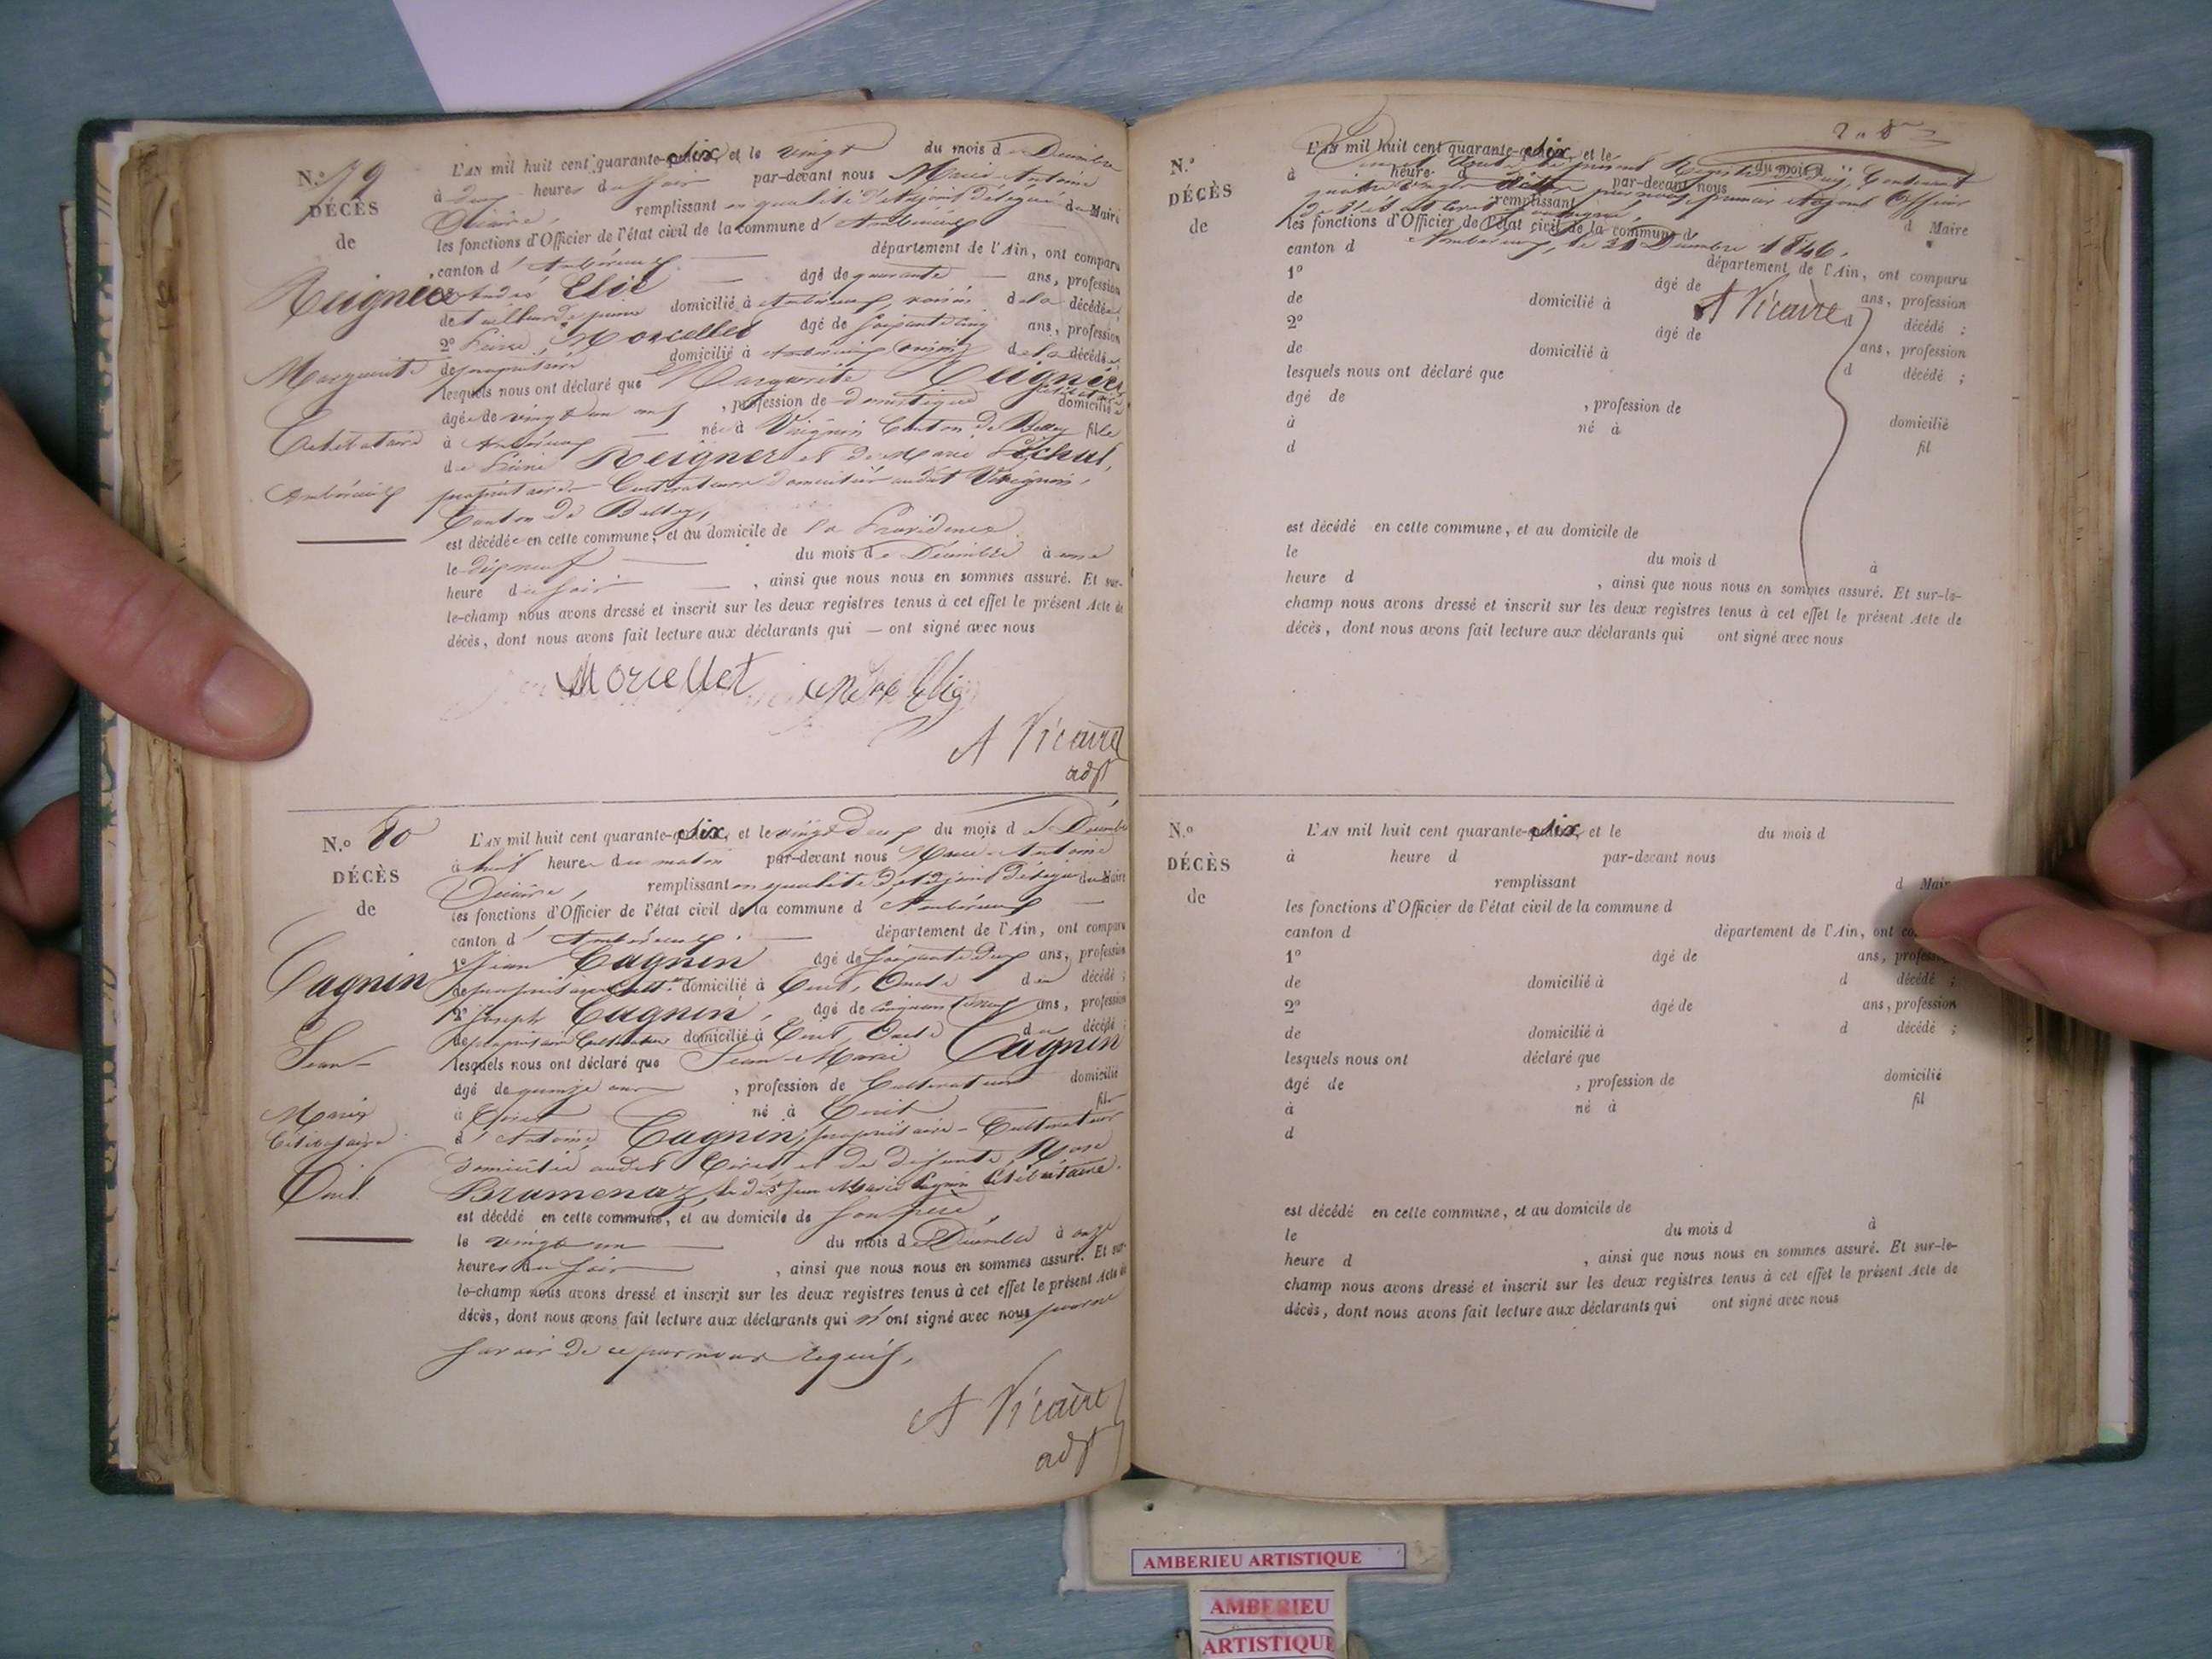 N.º 79
DÉCÈS
de
Reignier
Marguerite
Célibataire
Ambérieux
L'AN mil huit cent quarante-six, et le vingt du mois de Décembre
à deux heures du soir par-devant nous Marie-Antoine
Vicaire, remplissant en qualité d'adjoint délégué du Maire
les fonctions d'Officier de l'état civil de la commune d'Ambérieux
canton d'Ambérieux département de l'Ain, ont comparu
1º André Elie âgé de quarante ans, profession
de tailleur de pierre domicilié à Ambérieux, voisin de la décédée;
2º Pierre Morcellet âgé de soixante cinq ans, profession
de propriétaire domicilié à Ambérieux voisin de la décédée
lesquels nous ont déclaré que Marguerite Reignier
célibataire
âgée de vingt un ans, profession de domestique domiciliée
à Ambérieux née à Virignin Canton de Belley fille
de Pierre Reignier et de Marie
propriétaires Cultivateurs domiciliés audit Virignin,
Canton de Belley,
est décédée en cette commune, et au domicile de la Providence
le dix neuf du mois de Décembre à une
heure du soir, ainsi que nous nous en sommes assuré. Et sur-
le-champ nous avons dressé et inscrit sur les deux registres tenus à cet effet le présent Acte de
décès, dont nous avons fait lecture aux déclarants qui — ont signé avec nous
Morcellet andre Elie
A Vicaire
adjt
N.º 80
DÉCÈS
de
Cagnin
Jean-
Marie
Célibataire
L'AN mil huit cent quarante-six, et le vingt deux du mois de Décembre
à huit heures du matin par-devant nous Marie-Antoine
Vicaire, remplissant en qualité d'adjoint délégué du Maire
les fonctions d'Officier de l'état civil de la commune d'Ambérieux
canton d'Ambérieux. département de l'Ain, ont comparu
1º Jean Cagnin âgé de soixante deux ans, profession
de propriétaire cultr domicilié à Oncle du décédé;
2º Joseph Cagnin, âgé de cinquante ans, profession
de propriétaire Cultivateur domicilié à Oncle du décédé;
lesquels nous ont déclaré que Jean-Marie Cagnin
âgé de quinze ans, profession de Cultivateur domicilié
à né à fils
d'Antoine Cagnin, propriétaire-Cultivateur
domicilié audit et de défunte
Bramenaz, le dit Jean Marie Cagnin célibataire.
est décédé en cette commune, et au domicile de son père,
le vingt un du mois de Décembre à onze
heures du soir, ainsi que nous nous en sommes assuré. Et sur-
le-champ nous avons dressé et inscrit sur les deux registres tenus à cet effet le présent Acte de
décès, dont nous avons fait lecture aux déclarants qui n'ont signé avec nous pour ne
savoir de ce par nous requis,
A Vicaire
adjt
N.º
DÉCÈS
de
L'AN mil huit cent quarante-six, et le du mois d
à heure d par-devant nous
remplissant d Maire
les fonctions d'Officier de l'état civil de la commune d
canton d
Ambérieux, le 31 Décembre 1846.
département de l'Ain, ont comparu
1º âgé de ans, profession
de domicilié à d décédé;
A Vicaire
2º âgé de ans, profession
de domicilié à d décédé;
lesquels nous ont déclaré que
âgé de, profession de domicilié
à né à fil
d
est décédé en cette commune, et au domicile de
le du mois d à
heure d, ainsi que nous nous en sommes assuré. Et sur-le-
champ nous avons dressé et inscrit sur les deux registres tenus à cet effet le présent Acte de
décès, dont nous avons fait lecture aux déclarants qui ont signé avec nous
N.º
DÉCÈS
de
L'AN mil huit cent quarante-six, et le du mois d
à heure d par-devant nous
remplissant d Mair
les fonctions d'Officier de l'état civil de la commune d
canton d département de l'Ain, ont co
1º âgé de ans, profess
de domicilié à d décédé;
2º âgé de ans, profession
de domicilié à d décédé;
lesquels nous ont déclaré que
âgé de, profession de domicilié
à né à fil
d
est décédé en cette commune, et au domicile de
le du mois d à
heure d, ainsi que nous nous en sommes assuré. Et sur-le-
champ nous avons dressé et inscrit sur les deux registres tenus à cet effet le présent Acte de
décès, dont nous avons fait lecture aux déclarants qui ont signé avec nous
AMBERIEU ARTISTIQUE
AMBERIEU
ARTISTIQUE